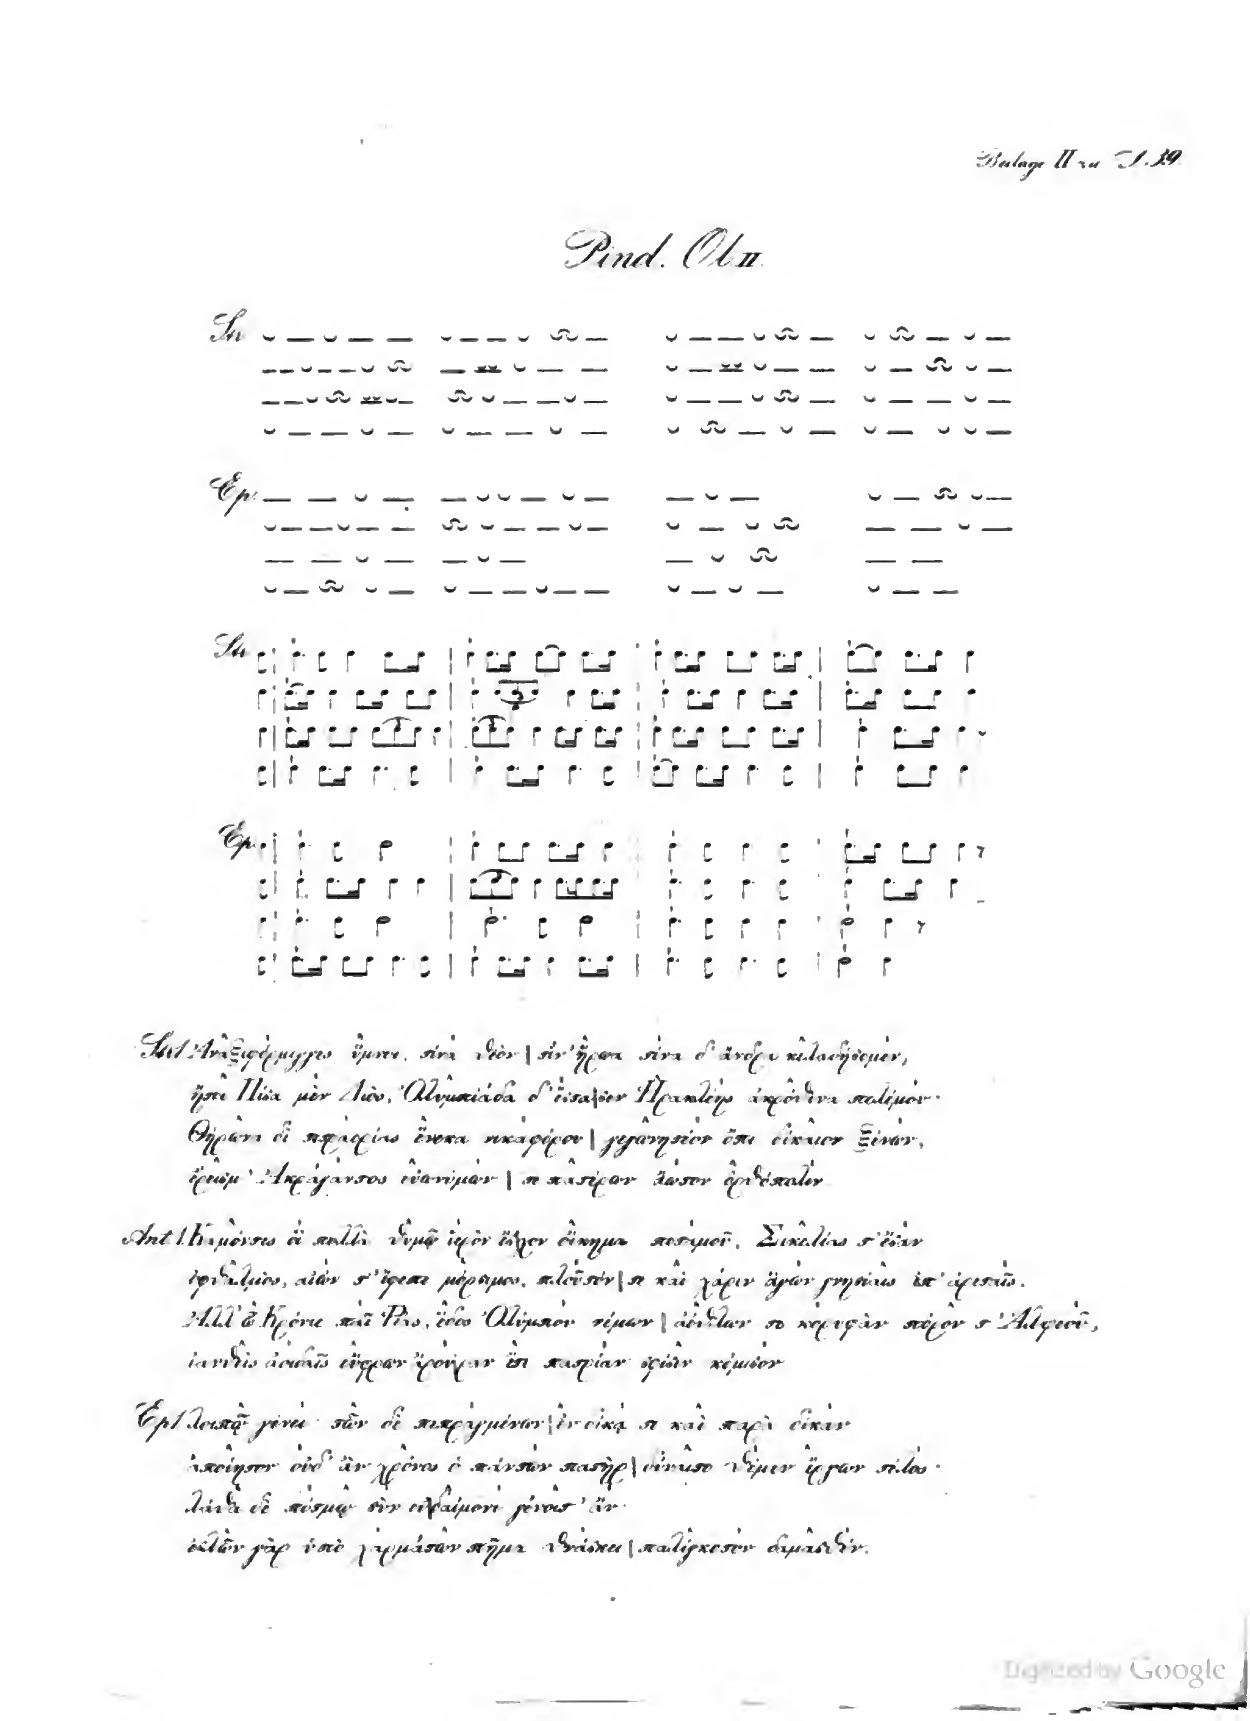 Beilage II zu S. 39
Pind. Ol. II.
Str.
Ep.
Str.
Ep.
Str 1 Ἀναξιφόρμιγγες ὕμνοι, τίνα θεὸν | τίν' ἥρωα τίνα δ' ἄνδρα κελαδήσομεν,
ἤτοι Πίσα μὲν Διὸς, Ὀλυμπιάδα δ' ἔστα|σεν Ἡρακλέης ἀκρόθινα πολέμου·
Θήρωνα δὲ τετραορίας ἕνεκα νικαφόρου | γεγωνητέον ὄπι δίκαιον ξένων,
ἔρεισμ' Ἀκράγαντος εὐωνύμων | τε πατέρων ἄωτον ὀρθόπολιν
Ant 1. Καμόντες οἳ πολλὰ θυμῷ ἱερὸν ἔσχον οἴκημα ποταμοῦ, Σικελίας τ' ἔσαν
ὀφθαλμὸς, αἰὼν τ' ἔφεπε μόρσιμος, πλοῦτόν | τε καὶ χάριν ἄγων γνησίαις ἐπ' ἀρεταῖς.
Ἀλλ' ὦ Κρόνιε παῖ Ῥέας, ἕδος Ὀλύμπου νέμων | ἀέθλων τε κορυφὰν πόρον τ' Ἀλφεοῦ,
ἰανθεὶς ἀοιδαῖς εὔφρων ἄρουραν ἔτι πατρίαν σφίσιν κόμισον
Ep 1 λοιπῷ γένει· τῶν δὲ πεπραγμένων | ἐν δίκᾳ τε καὶ παρὰ δίκαν
ἀποίητον οὐδ' ἂν χρόνος ὁ πάντων πατὴρ | δύναιτο θέμεν ἔργων τέλος·
λάθα δὲ πότμῳ σὺν εὐδαίμονι γένοιτ' ἄν·
ἐσλῶν γὰρ ὑπὸ χαρμάτων πῆμα θνάσκει | παλίγκοτον δαμασθέν.
Digitized by Google